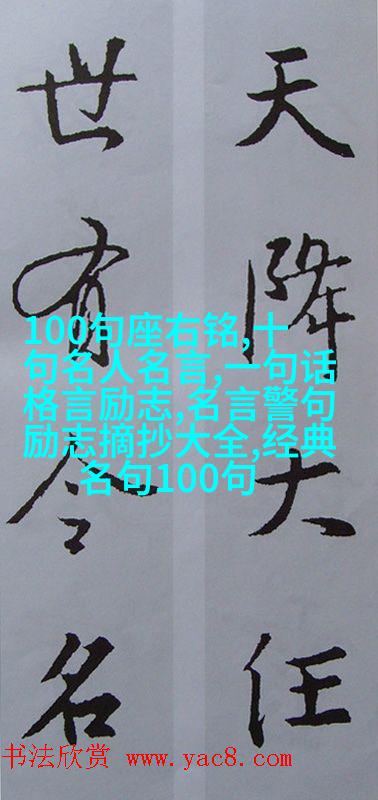 天降大任
世有令名
100句座右铭,十
句名人名言,一句话
格言励志,名言警句
励志摘抄大全,经典
名句100句
书法欣赏 www.yac8.com